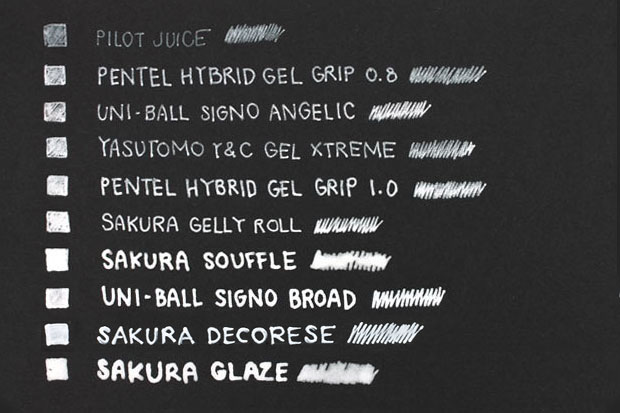 PILOT JUICE
PENTEL HYBRID GEL GRIP 0.8
UNI-BALL SIGNO ANGELIC
YASUTOMO Y&C GEL XTREME
PENTEL HYBRID GEL GRIP 1.0
SAKURA GELLY ROLL
SAKURA SOUFFLE
UNI-BALL SIGNO BROAD
SAKURA DECORESE
SAKURA GLAZE